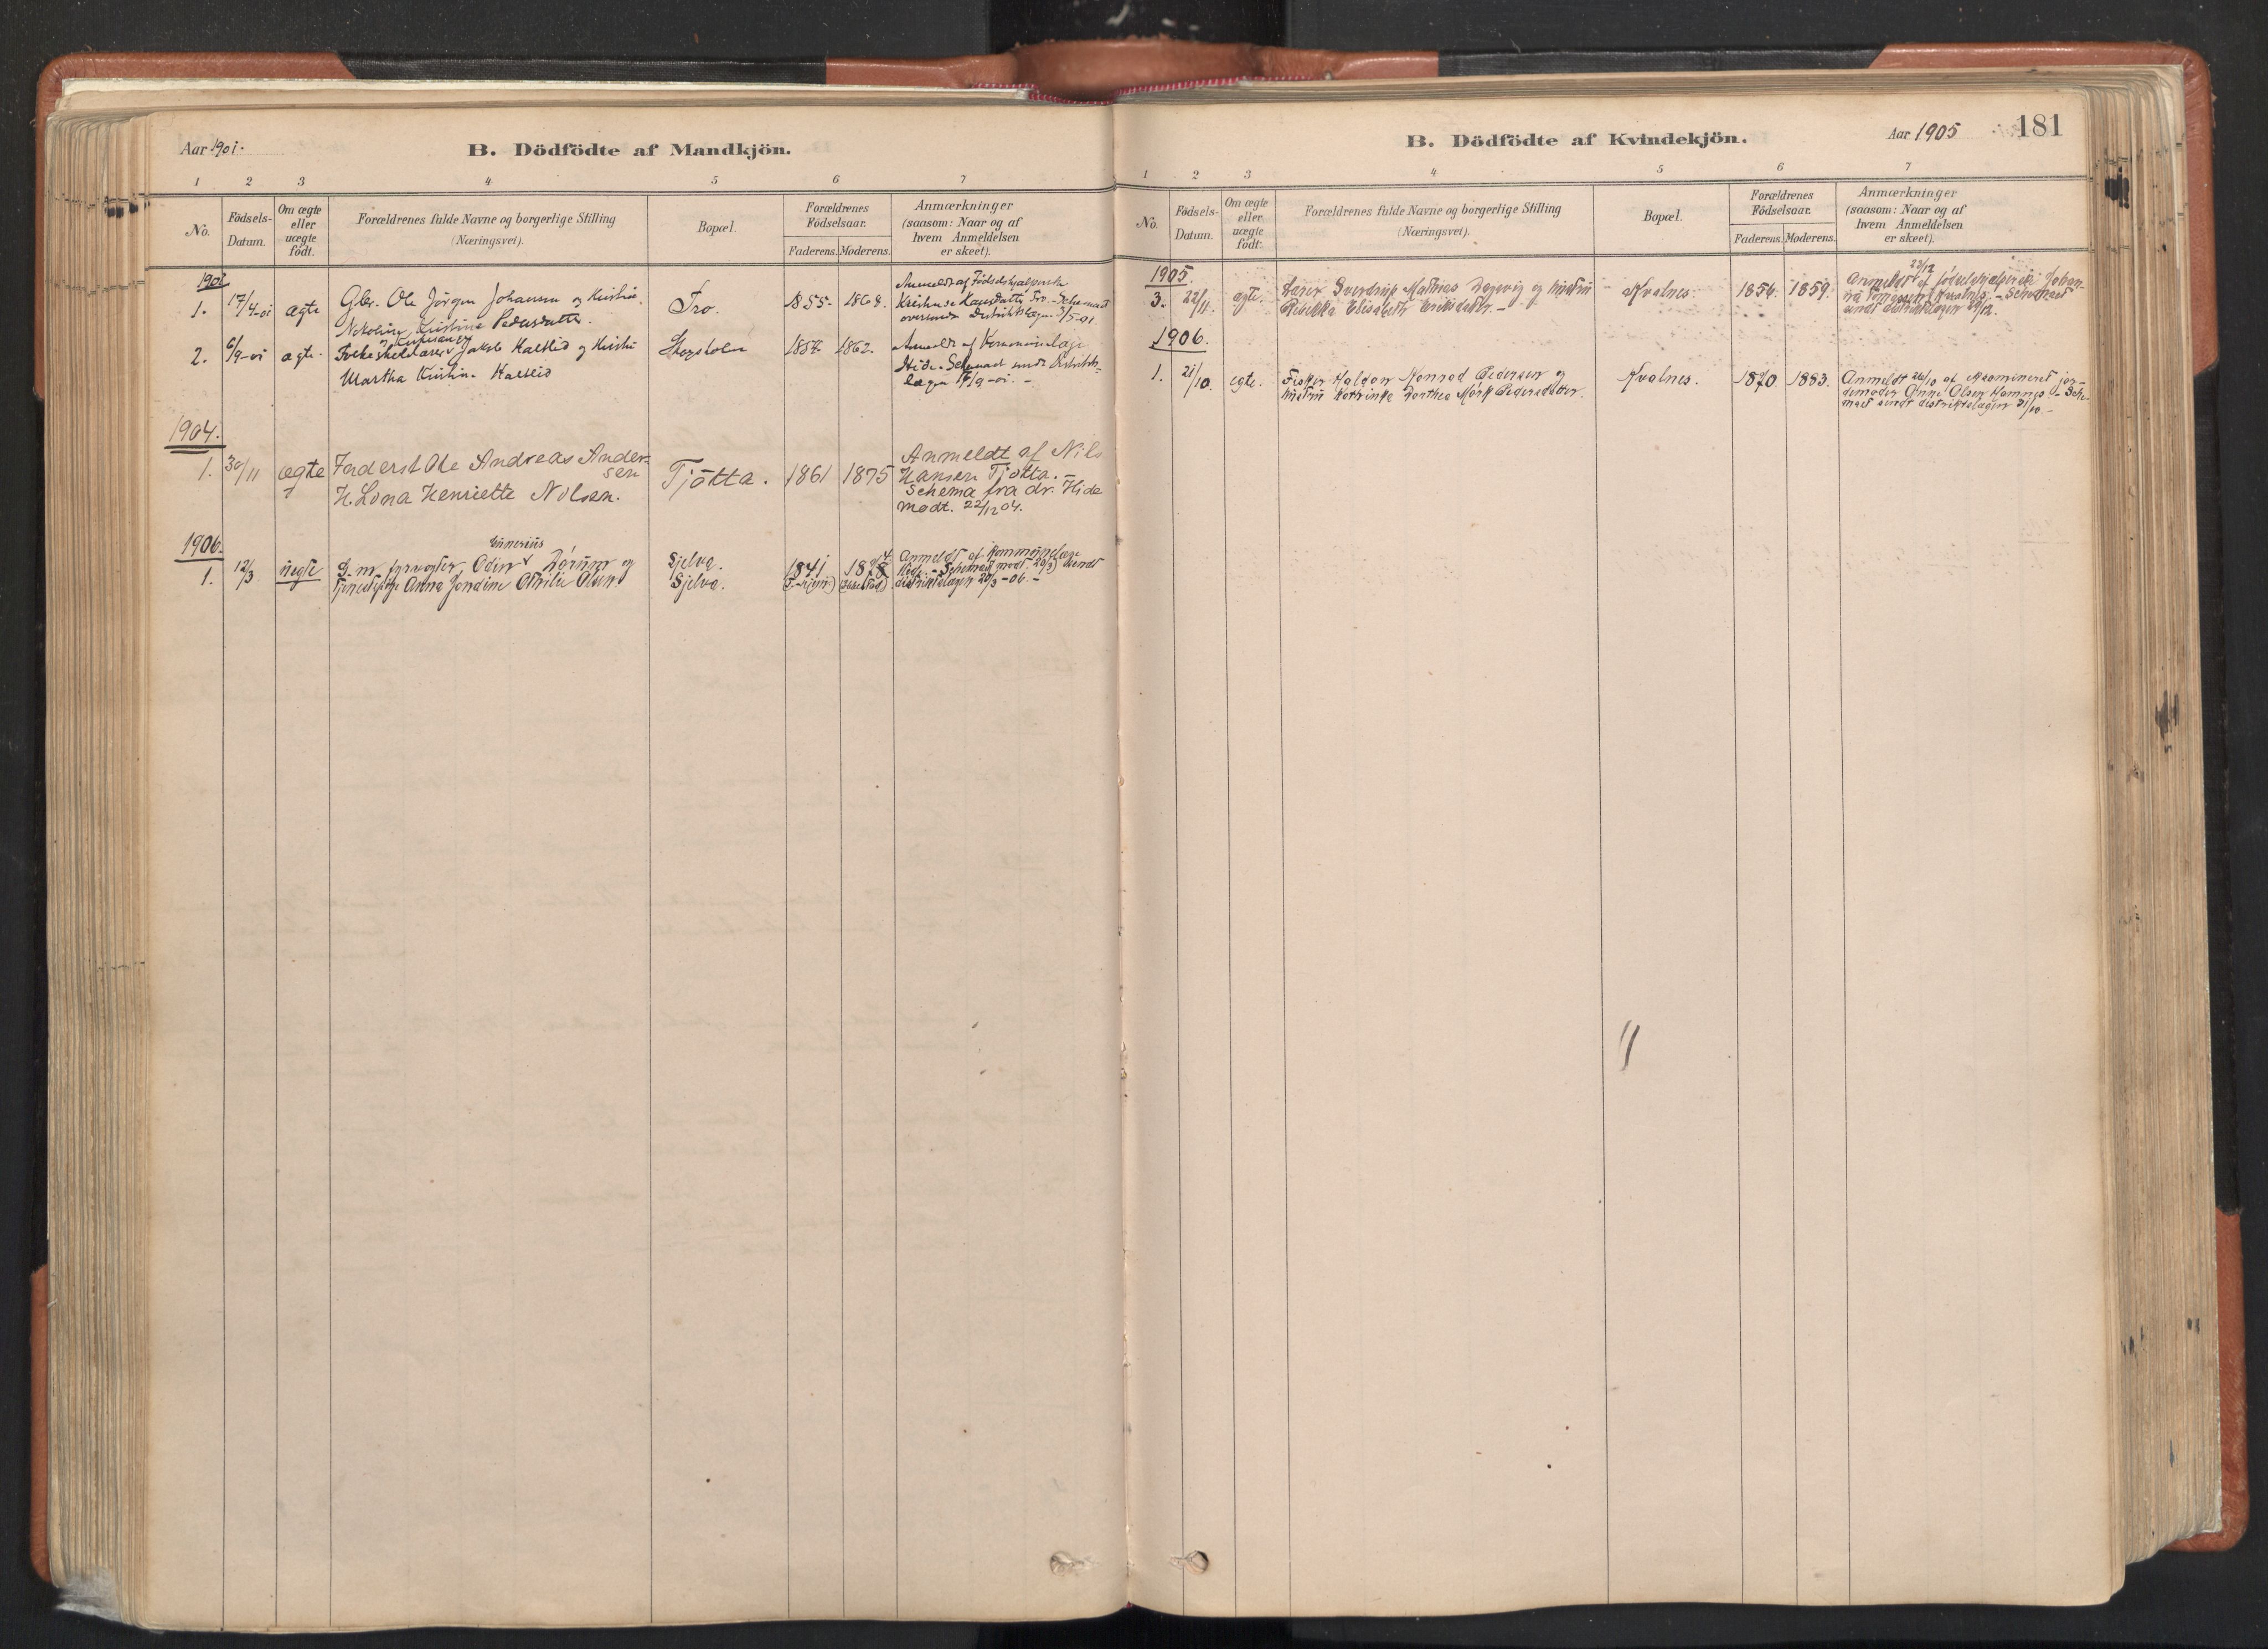 Aar 1901.
B. Dödfödte af Mandkjön.
1 2 3 4 5 6 7
No.
Födsels-
Datum.
Om ægte
eller
uægte
födt.
Forældrenes fulde Navne og borgerlige Stilling
(Næringsvei).
Bopæl.
Forældrenes
Födselsaar.
Faderens. Moderens.
Anmærkninger
(saasom: Naar og af
hvem Anmeldelsen
er skeet).
1901
1. 17/4-01 ægte Gbr. Ole Jörgen Johansen og Hustru
Nikoline Kristine Pedersdatter.
Tro. 1855. 1868.
Anmeldt af Födselshjælperske
Tro. Schemaet
Distriktslægen 3/5-01
2. 6/9-01 ægte. og Kirkesanger
Jakob Kaltlid og Hustru
Martha Kaltlid
1857. 1862.
Anmeldt af Kommunelæge
Hide. Schemaet sendt Distrikts-
lægen 17/9-01. -
1904.
1. 30/11 ægte Inderst Ole Andreas Ander-
sen
H. Lona Henriette Nilsen.
Tjötta. 1861 1875
Anmeldt af Nils
Hansen Tjötta. -
Schema fra dr. Hide
modt. 22/12 04.
1906.
1. 12/3 uegte
Odin og
Anna Jondine Othilie Olsen
Sjelva.
Sjelva.
1841
Anmeldt af Kommunelæge
Hide. - Schemaet modt. 20/3 sendt
distriktslægen 20/3-06. -
B. Dödfödte af Kvindekjön.
Aar 1905
181
1 2 3 4 5 6 7
No.
Födsels-
Datum.
Om ægte
eller
uægte
födt.
Forældrenes fulde Navne og borgerlige Stilling
(Næringsvei).
Bopæl.
Forældrenes
Födselsaar.
Faderens. Moderens.
Anmærkninger
(saasom: Naar og af
hvem Anmeldelsen
er skeet).
1905.
3. 22/11. egte. Sverdrup Mathias og hustru
Rebekka Elisabeth Eriksdatter. -
Kvalnes. 1854. 1859.
23/12
Anmeldt af födselshjelperske Johan-
na Kvalnes. - Schemaet
sendt distriktslægen
1906.
1. 21/10. egte. Fisker Haldor Konrad Pedersen og
hustru Dorthea Mörk Pedersdatter.
Kvalnes. 1870 1883.
Anmeldt 26/10 af examineret jor-
demoder Anne Olsen - Sche-
maet sendt distriktslægen 31/10. -